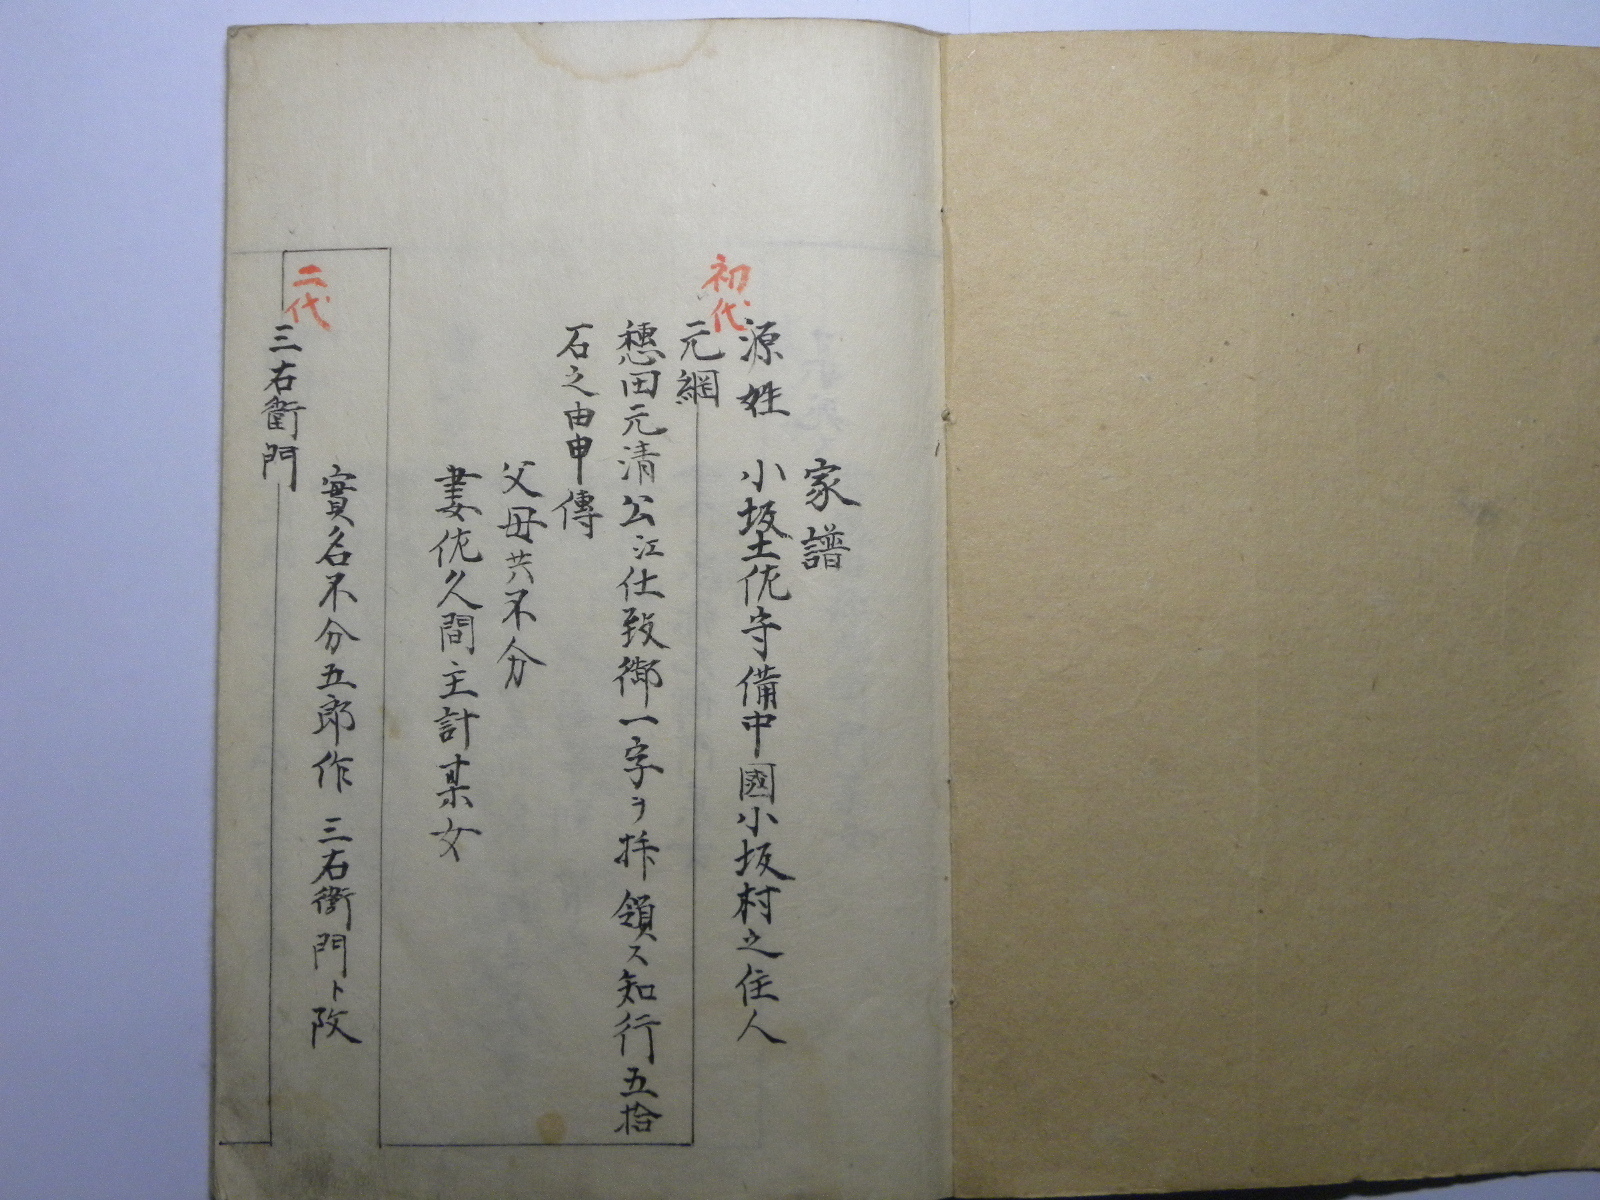 家譜
源姓 小坂土佐守備中國小坂村之住人
初代
元綱
穂田元清公江仕致御一字ヲ拝領ス知行五拾
石之由申傳
父母共不分
妻佐久間主計某女
二代
實名不分五郎作 三右衛門ト改
三右衛門